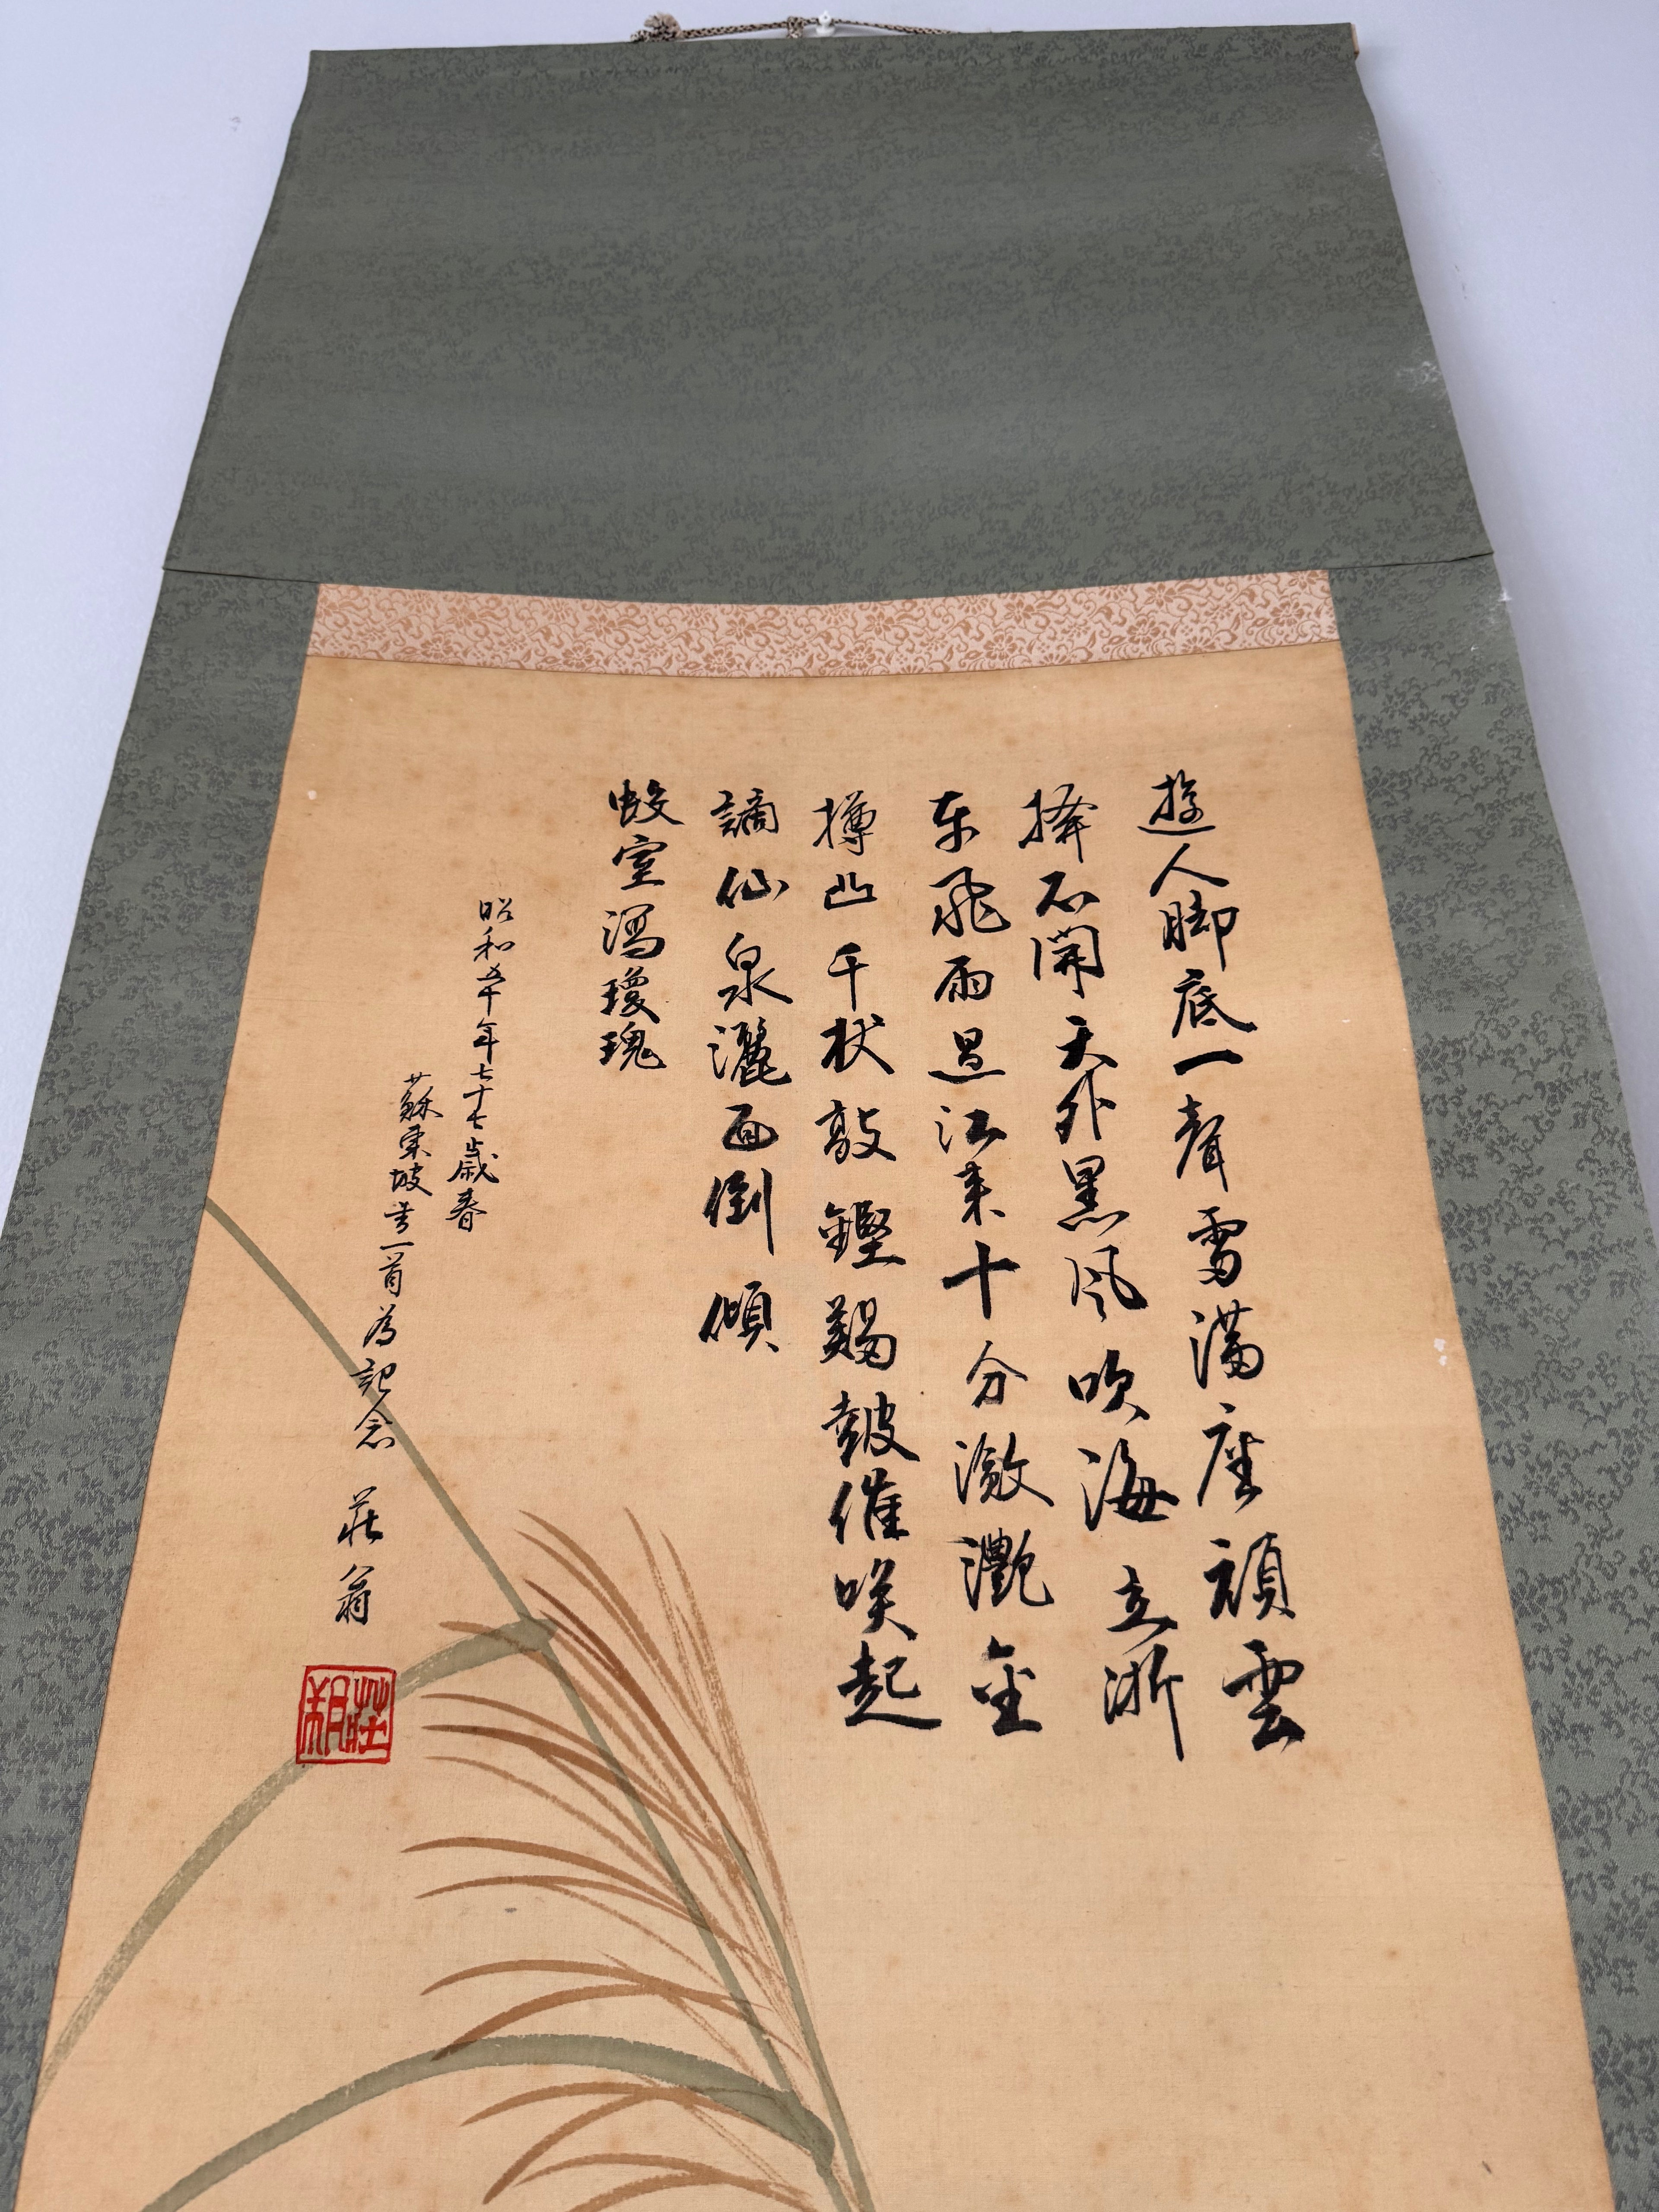 遊人脚底一聲雷滿座頑雲
撥不開天外黑風吹海立浙
東飛雨過江来十分瀲灩金
樽凸千杖敲鏗羯鼓催喚起
謫仙泉灑面倒傾
蛟室瀉瓊瑰
昭和五十年七十七歳春
蘇東坡書一首為記念 莊翁